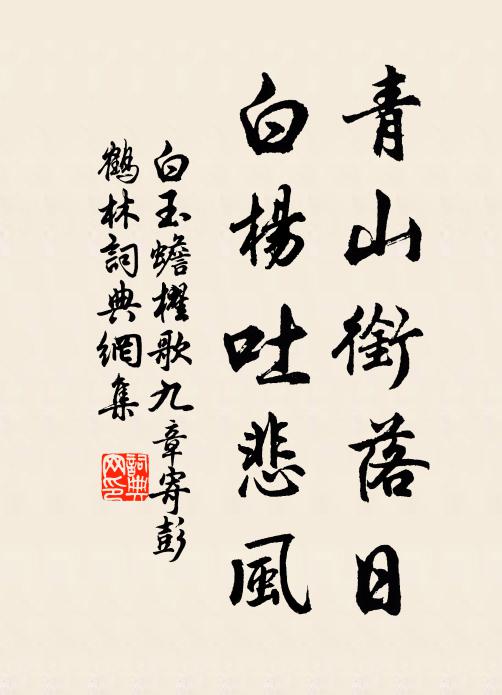 青山銜落日
白楊吐悲風
白玉蟾櫂歌九章寄彭
鶴林詞典網集
詞典
网印